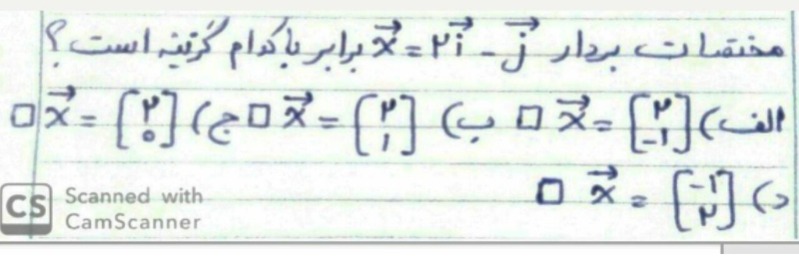 مختصات بردار x⃗ = ۲i⃗ - j⃗ برابر با کدام گزینه است؟
الف) x⃗ = [۲ -۱] □ ب) x⃗ = [۲ ۱] □ ج) x⃗ = [۲ ۰] □
د) x⃗ = [-۱ ۲] □
CS Scanned with
CamScanner